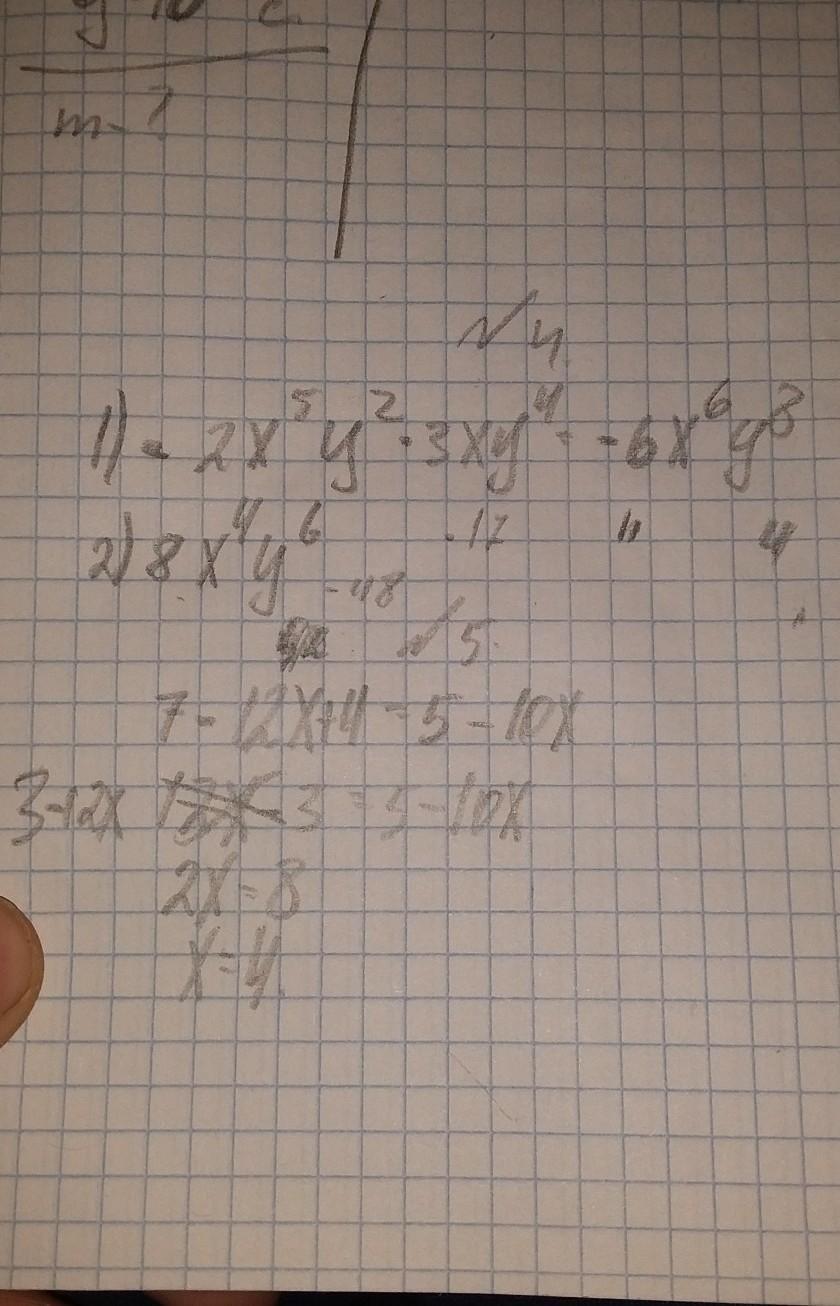 m-?
№4.
1) -2x⁵y²·3xy⁴=-6x⁶y⁸
2) 8x⁴y⁶
-48
№5.
7-12x+4=5-10x
3-12x 3=5-10x
2x=8
x=4.